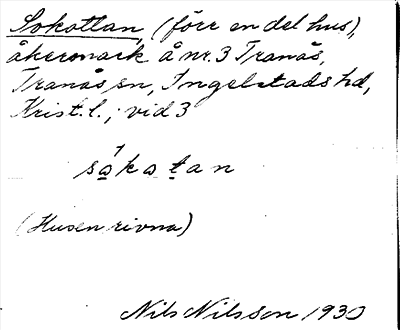 Sokottan, (förr en del hus),
åkermark å nr. 3 Tranås,
Tranås sn, Ingelstads hd,
Krist. l.; vid 3
såkatan
(Husen rivna)
Nils Nilsson 1930